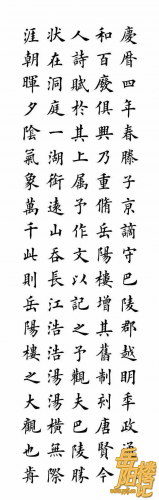 慶曆四年春滕子京謫守巴陵郡越明年政
和百廢俱興乃重脩岳陽樓增其舊制刻唐賢今
人詩賦於其上属予作文以記之予觀夫巴陵勝
狀在洞庭一湖銜遠山吞長江浩浩湯湯橫無際
涯朝暉夕陰氣象萬千此則岳陽樓之大觀也前
岳陽楼记